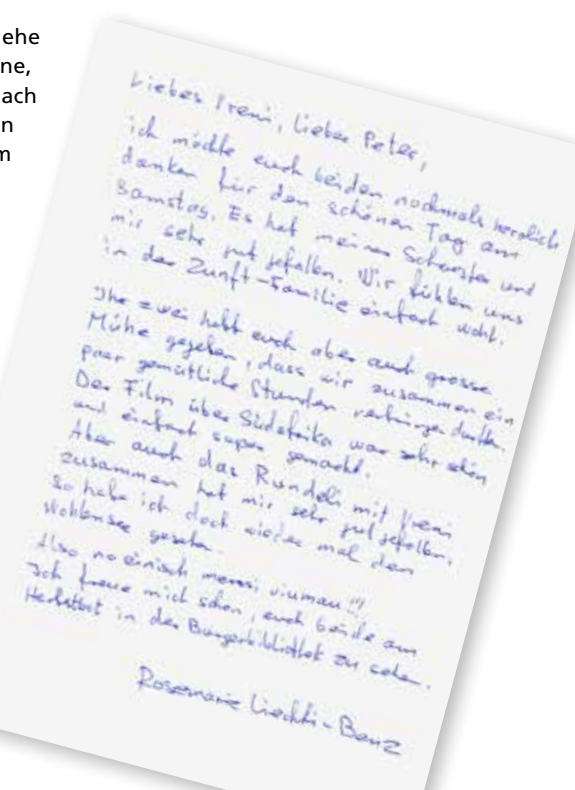 ehe
ne,
ach
n
m
Liebes Vreni, lieber Peter,
ich möchte euch beiden nochmals herzlich
danken für den schönen Tag am
Samstag. Es hat meiner Schwester und
mir sehr gut gefallen. Wir fühlen uns
in der Zunft-Familie einfach wohl.
Ihr zwei habt euch aber auch grosse
Mühe gegeben, dass wir zusammen ein
paar gemütliche Stunden verbringen durften.
Der Film über Südafrika war sehr schön
und einfach super gemacht.
Aber auch das Rundeli mit Vreni
zusammen hat mir sehr gut gefallen,
so habe ich doch wieder mal den
Wohlensee gesehen.
Also no einisch merssi viumau!!!
Ich freue mich schon, euch beide am
Herbstbott in der Burgerbibliothek zu sehen.
Rosemarie Liechti-Benz